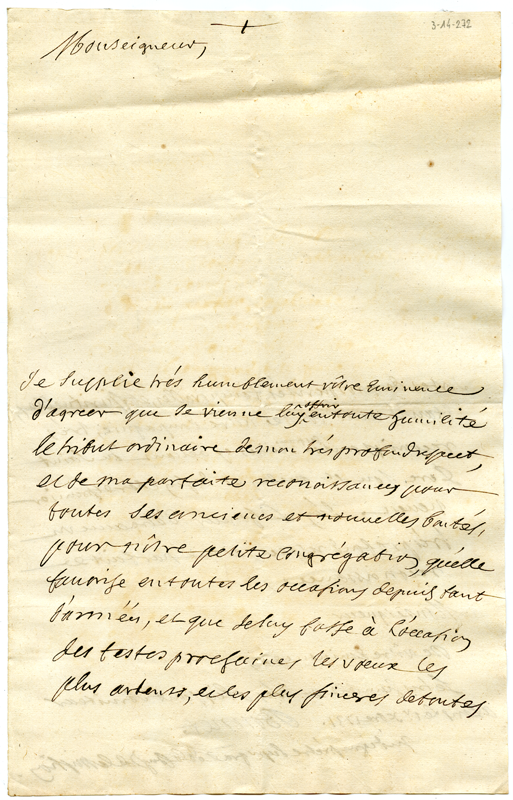 3-14-272
Monseigneur,
Je supplie trés humblement vôtre Eminence
d'agreer que Je vienne luy offrir en toute humilité
le tribut ordinaire de mon trés profond respect,
et de ma parfaite reconoissance pour
toutes ses anciennes et nouvelles bontés,
pour nôtre petite Congrégation, qu'elle
favorise en toutes les occasions depuis tant
d'années, et que Je luy fasse à l'occasion
des festes prochaines, les voeux les
plus ardents, et les plus sinceres de toutes